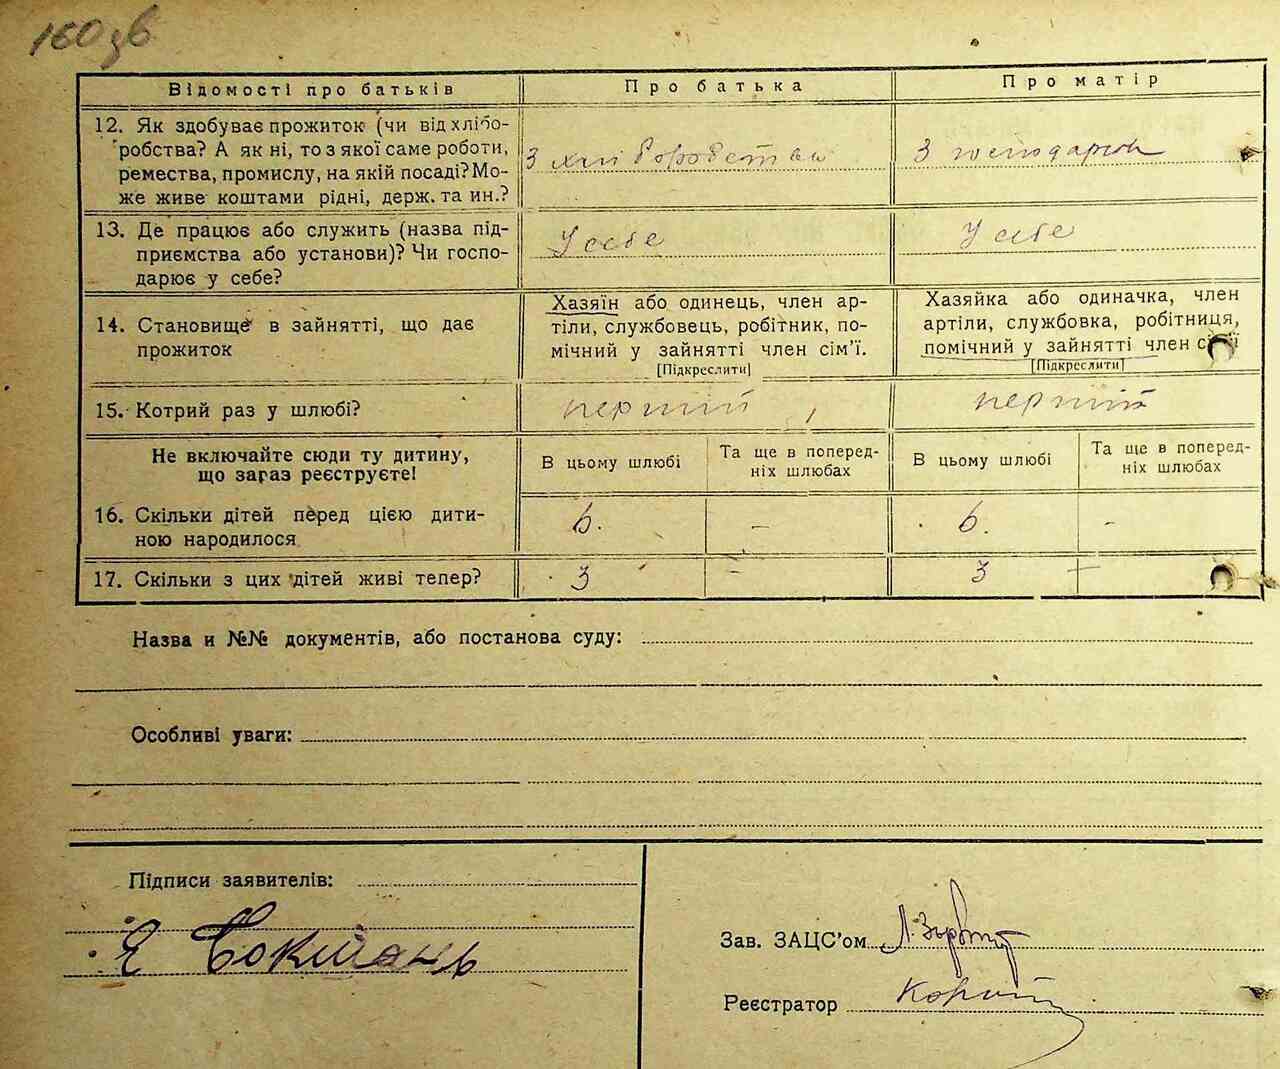 160 зв
Відомості про батьків
Про батька
Про матір
12. Як здобуває прожиток (чи від хлібо-
робства? А як ні, то з якої саме роботи,
ремества, промислу, на якій посаді? Мо-
же живе коштами рідні, держ. та ин.?
З хліборобства
З господарки
13. Де працює або служить (назва під-
приємства або установи)? Чи госпо-
дарює у себе?
У себе
У себе
14. Становище в зайнятті, що дає
прожиток
Хазяїн або одинець, член ар-
тіли, службовець, робітник, по-
мічний у зайнятті член сім'ї.
[Підкреслити]
Хазяйка або одиначка, член
артіли, службовка, робітниця,
помічний у зайнятті член сім'ї
[Підкреслити]
15. Котрий раз у шлюбі?
перший
перший
Не включайте сюди ту дитину,
що загаз реєструєте!
В цьому шлюбі
Та ще в поперед-
ніх шлюбах
В цьому шлюбі
Та ще в поперед-
ніх шлюбах
16. Скільки дітей перед цією дити-
ною народилося
6.
–
6.
-
17. Скільки з цих дітей живі тепер?
3
–
3
–
Назва и №№ документів, або постанова суду:
Особливі уваги:
Підписи заявителів:
Зав. ЗАЦС'ом
Реєстратор